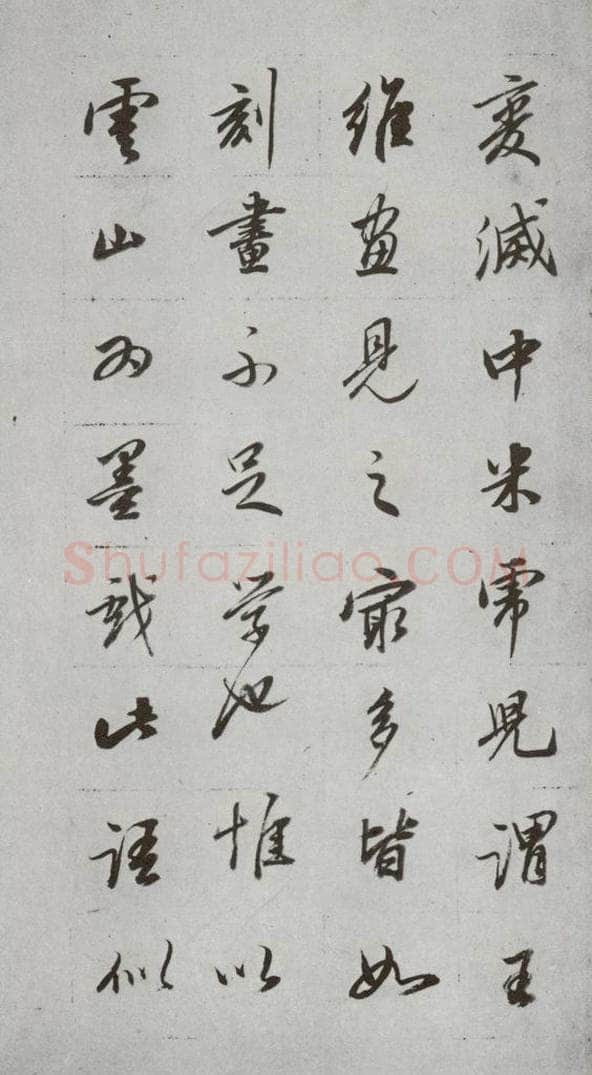 變滅中米虎兒謂王
維畫見之最多皆如
刻畫不足學也惟以
雲山為墨戲此語似
Shufaziliao.COM